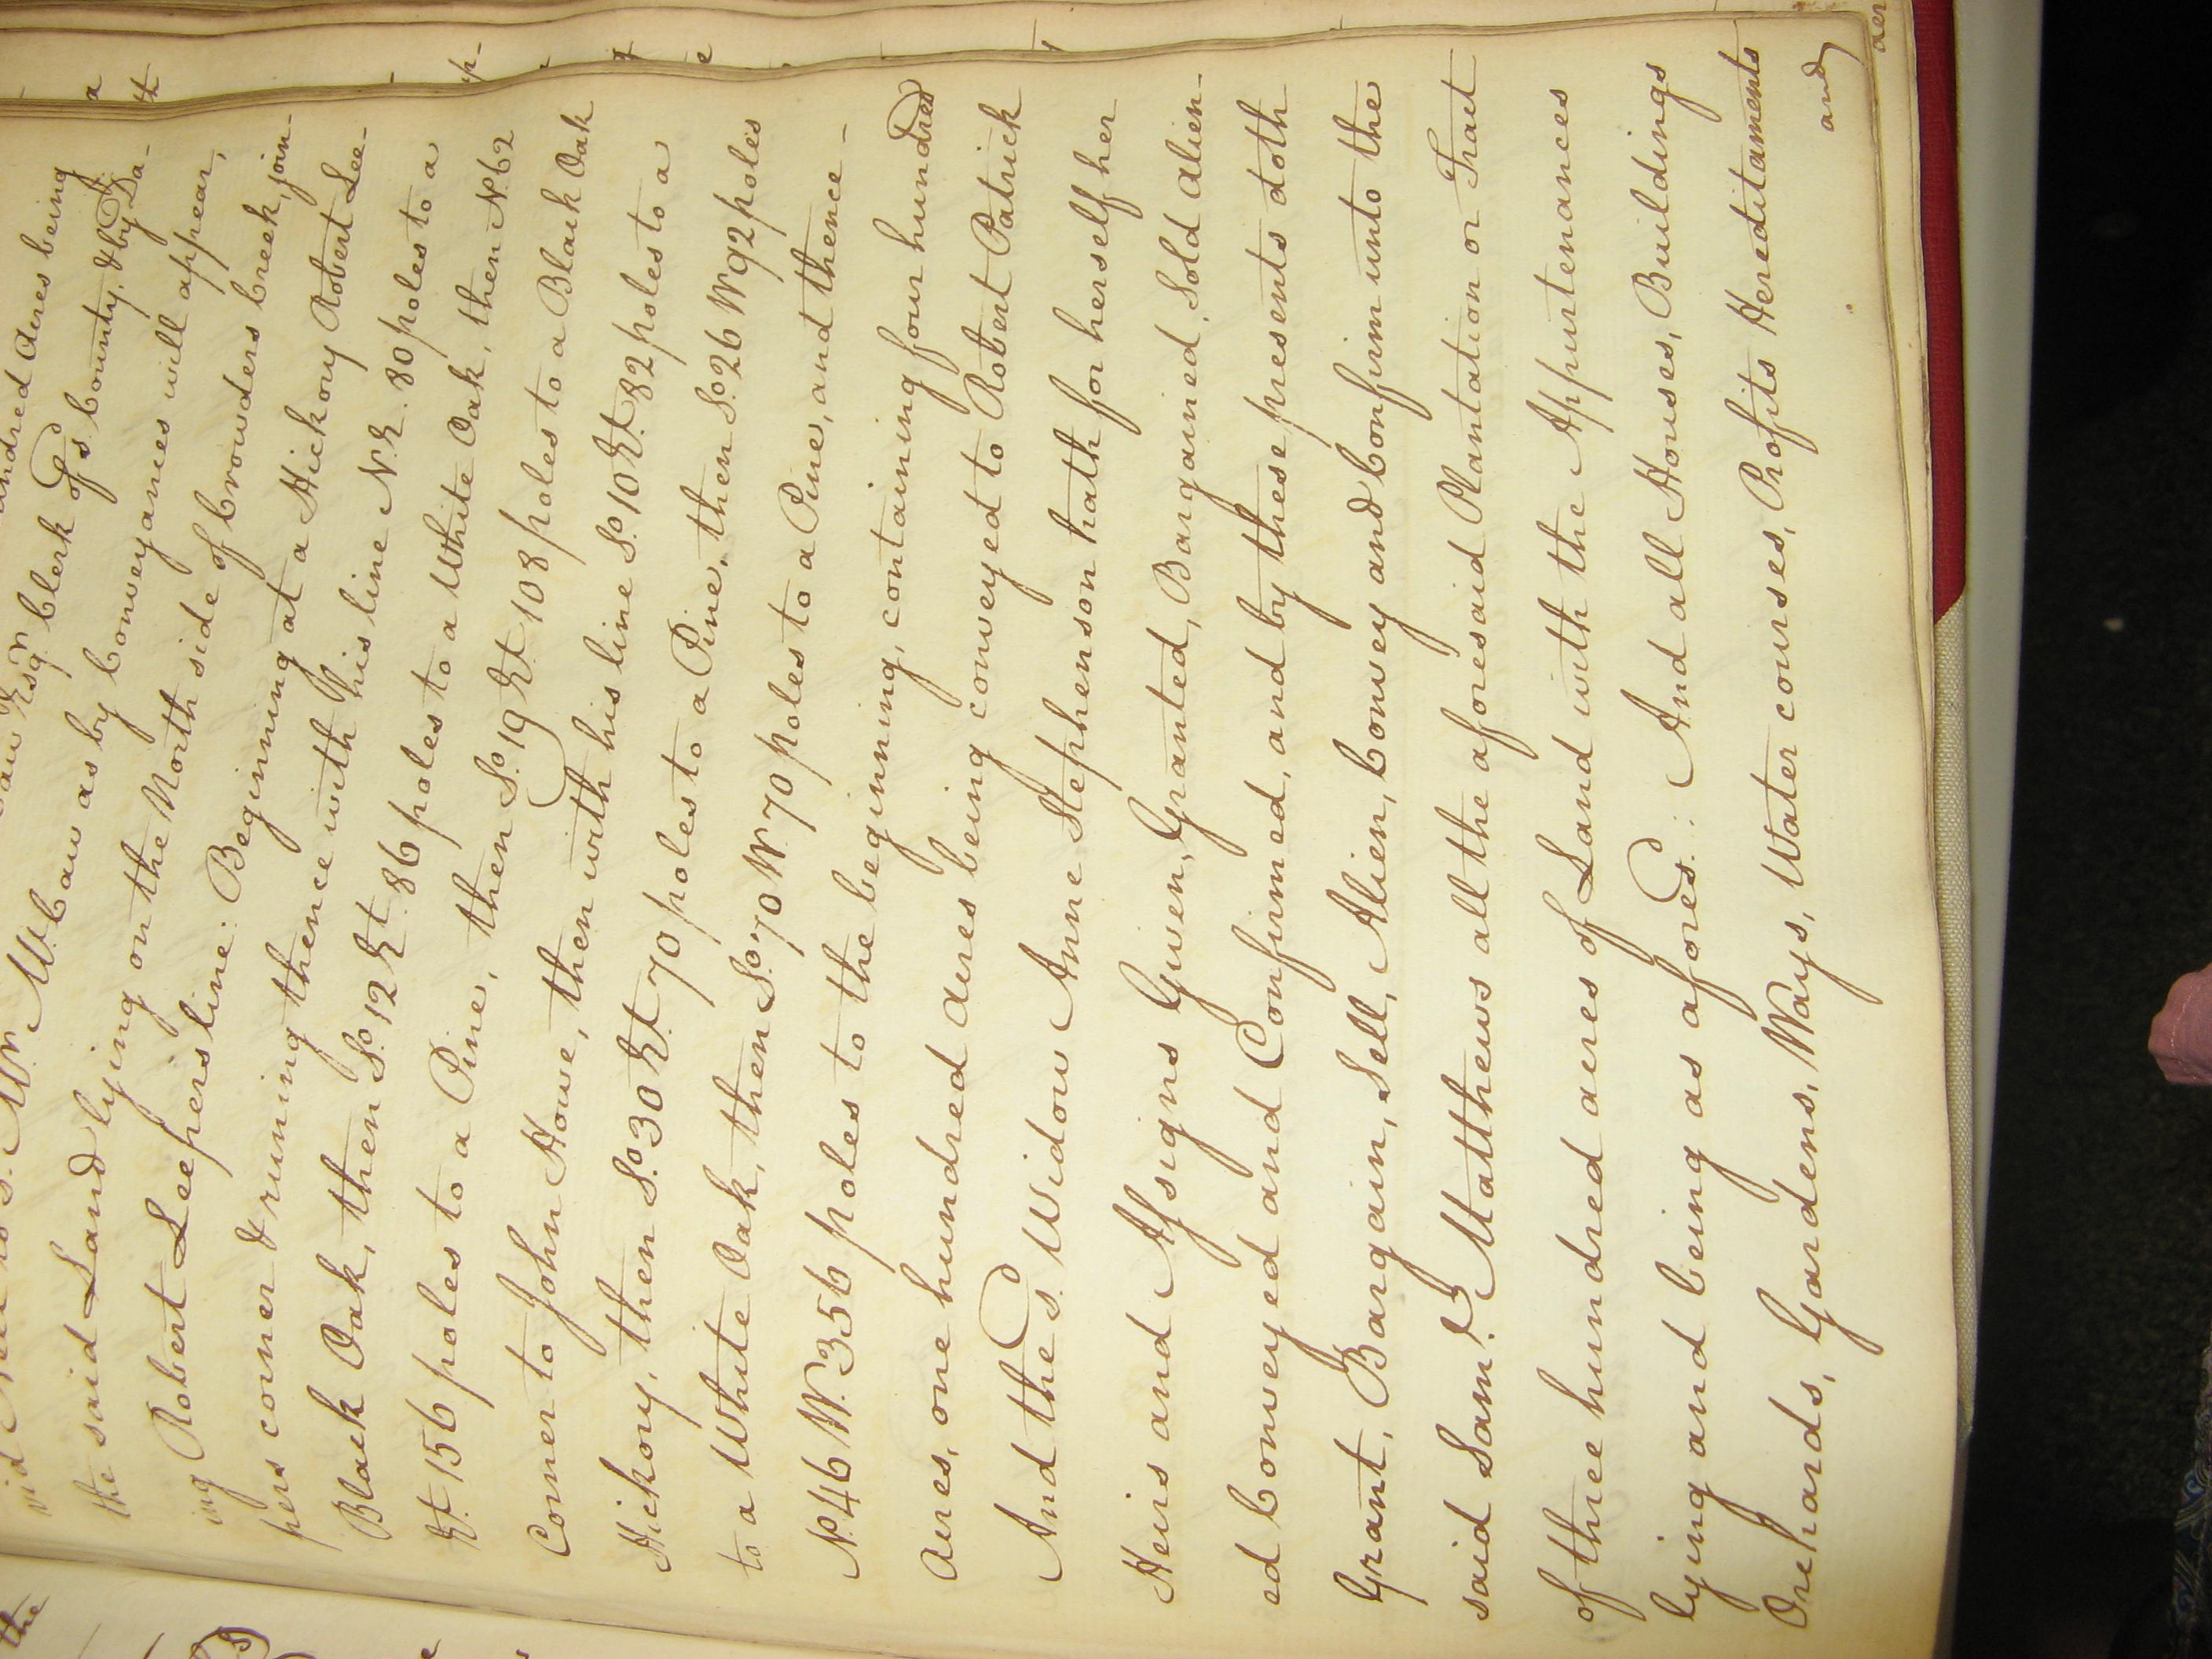 hundred acres being
Esqr. Clerk of sd. County, & by Da-
vid Mr. McCaw as by Conveyances will appear,
the said Land lying on the North side of Crowders Creek, join-
ing Robert Leepers line: Beginning at a Hickory Robert Lee-
pers corner & runing thence with his line N.E. 80 poles to a
Black Oak, then So. 12 Et. 86 poles to a White Oak, then N. 62
Et. 156 poles to a Pine, then So. 19 Et. 108 poles to a Black Oak
Corner to John Howe, then with his line So. 10 Et. 82 poles to a
Hickory, then So. 30 Et. 70 poles to a Pine, then So. 26 W. 92 poles
to a White Oak, then So. 70 W. 70 poles to a Pine, and thence -
N. 46 W. 356 poles to the beginning, containing four hundred
Acres, one hundred acres being conveyed to Robert Patrick
And the sd. Widow Anne Stephenson hath for herself her
Heirs and Assigns Given, Granted, Bargained, Sold Alien-
ed Conveyed and Confirmed, and by these presents doth
Grant, Bargain, Sell, Alien, Convey and Confirm unto the
said Saml. Matthews all the aforesaid Plantation or Tract
of three hundred acres of Land with the Appurtenances
lying and being as aforesd.: And all Houses, Buildings
Orchards, Gardens, Ways, Water courses, Profits Hereditaments
and